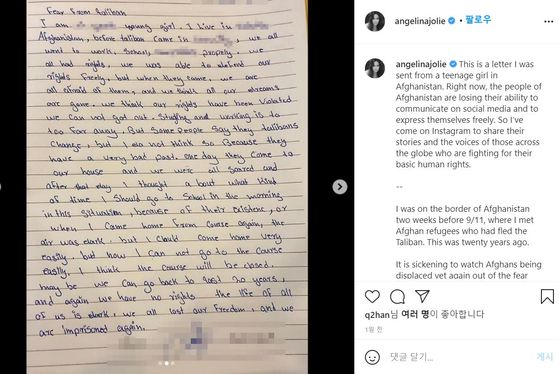 Fear From taliban
I am young girl. I live in
Afghanistan, before taliban came in we all
went to work, School, properly. we
all had rights, we was able to defend our
rights freely, but when they came, we are
all afraid of them, and we think all our dreams
are gone. we think our rights have been violated
we can not got out. Studying and working is to
too far away. But Some people Say they talibans
Change, but I do not think so Because they
have a very bad past. one day they come to
our house and we were all scared and
after that day I thought a bout what kind
of time I should go to School in the morning
in this situation, because of their existenc, or
when I came home from course again, the
air was dark, but I could come home very
easily, but now I can not go to the course
easily, I think the course will be closed.
may be we can go back to 20 years,
and again we have no rights the life of all
of us is dark, we all lost our freedom, and we
are imprisoned again.
angelinajolie • 팔로우
angelinajolie This is a letter I was
sent from a teenage girl in
Afghanistan. Right now, the people of
Afghanistan are losing their ability to
communicate on social media and to
express themselves freely. So I've
come on Instagram to share their
stories and the voices of those across
the globe who are fighting for their
basic human rights.
--
I was on the border of Afghanistan
two weeks before 9/11, where I met
Afghan refugees who had fled the
Taliban. This was twenty years ago.
It is sickening to watch Afghans being
displaced yet again out of the fear
q2han님 여러 명이 좋아합니다
1일 전
댓글 달기...
게시